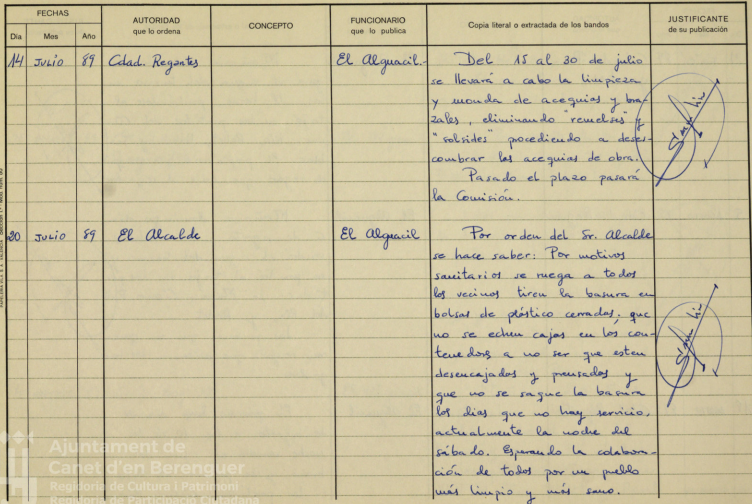 FECHAS
Día
Mes
Año
AUTORIDAD
que lo ordena
CONCEPTO
FUNCIONARIO
que lo publica
Copia literal o extractada de los bandos
JUSTIFICANTE
de su publicación
14 JULIO 89 Cdad. Regantes El Alguacil.-
Del 15 al 30 de julio
se llevará a cabo la limpieza
y monda de acequias y bra-
zales, eliminando "remelses" y
"solsides" procediendo a deses-
combrar las acequias de obra.
Pasado el plazo pasará
la Comisión.
20 JULIO 89 El Alcalde El Alguacil
Por orden del Sr. Alcalde
se hace saber: Por motivos
sanitarios se ruega a todos
los vecinos tiren la basura en
bolsas de plástico cerradas, que
no se echen cajas en los con-
tenedores a no ser que esten
desencajados y prensados y
que no se saque la basura
los dias que no hay servicio,
actualmente la noche del
sábado. Esperando la colabora-
ción de todos por un pueblo
más limpio y más sano.
Ajuntament de
Canet d'en Berenguer
Regidoria de Cultura i Patrimoni
Regidoria de Participació Ciutadana